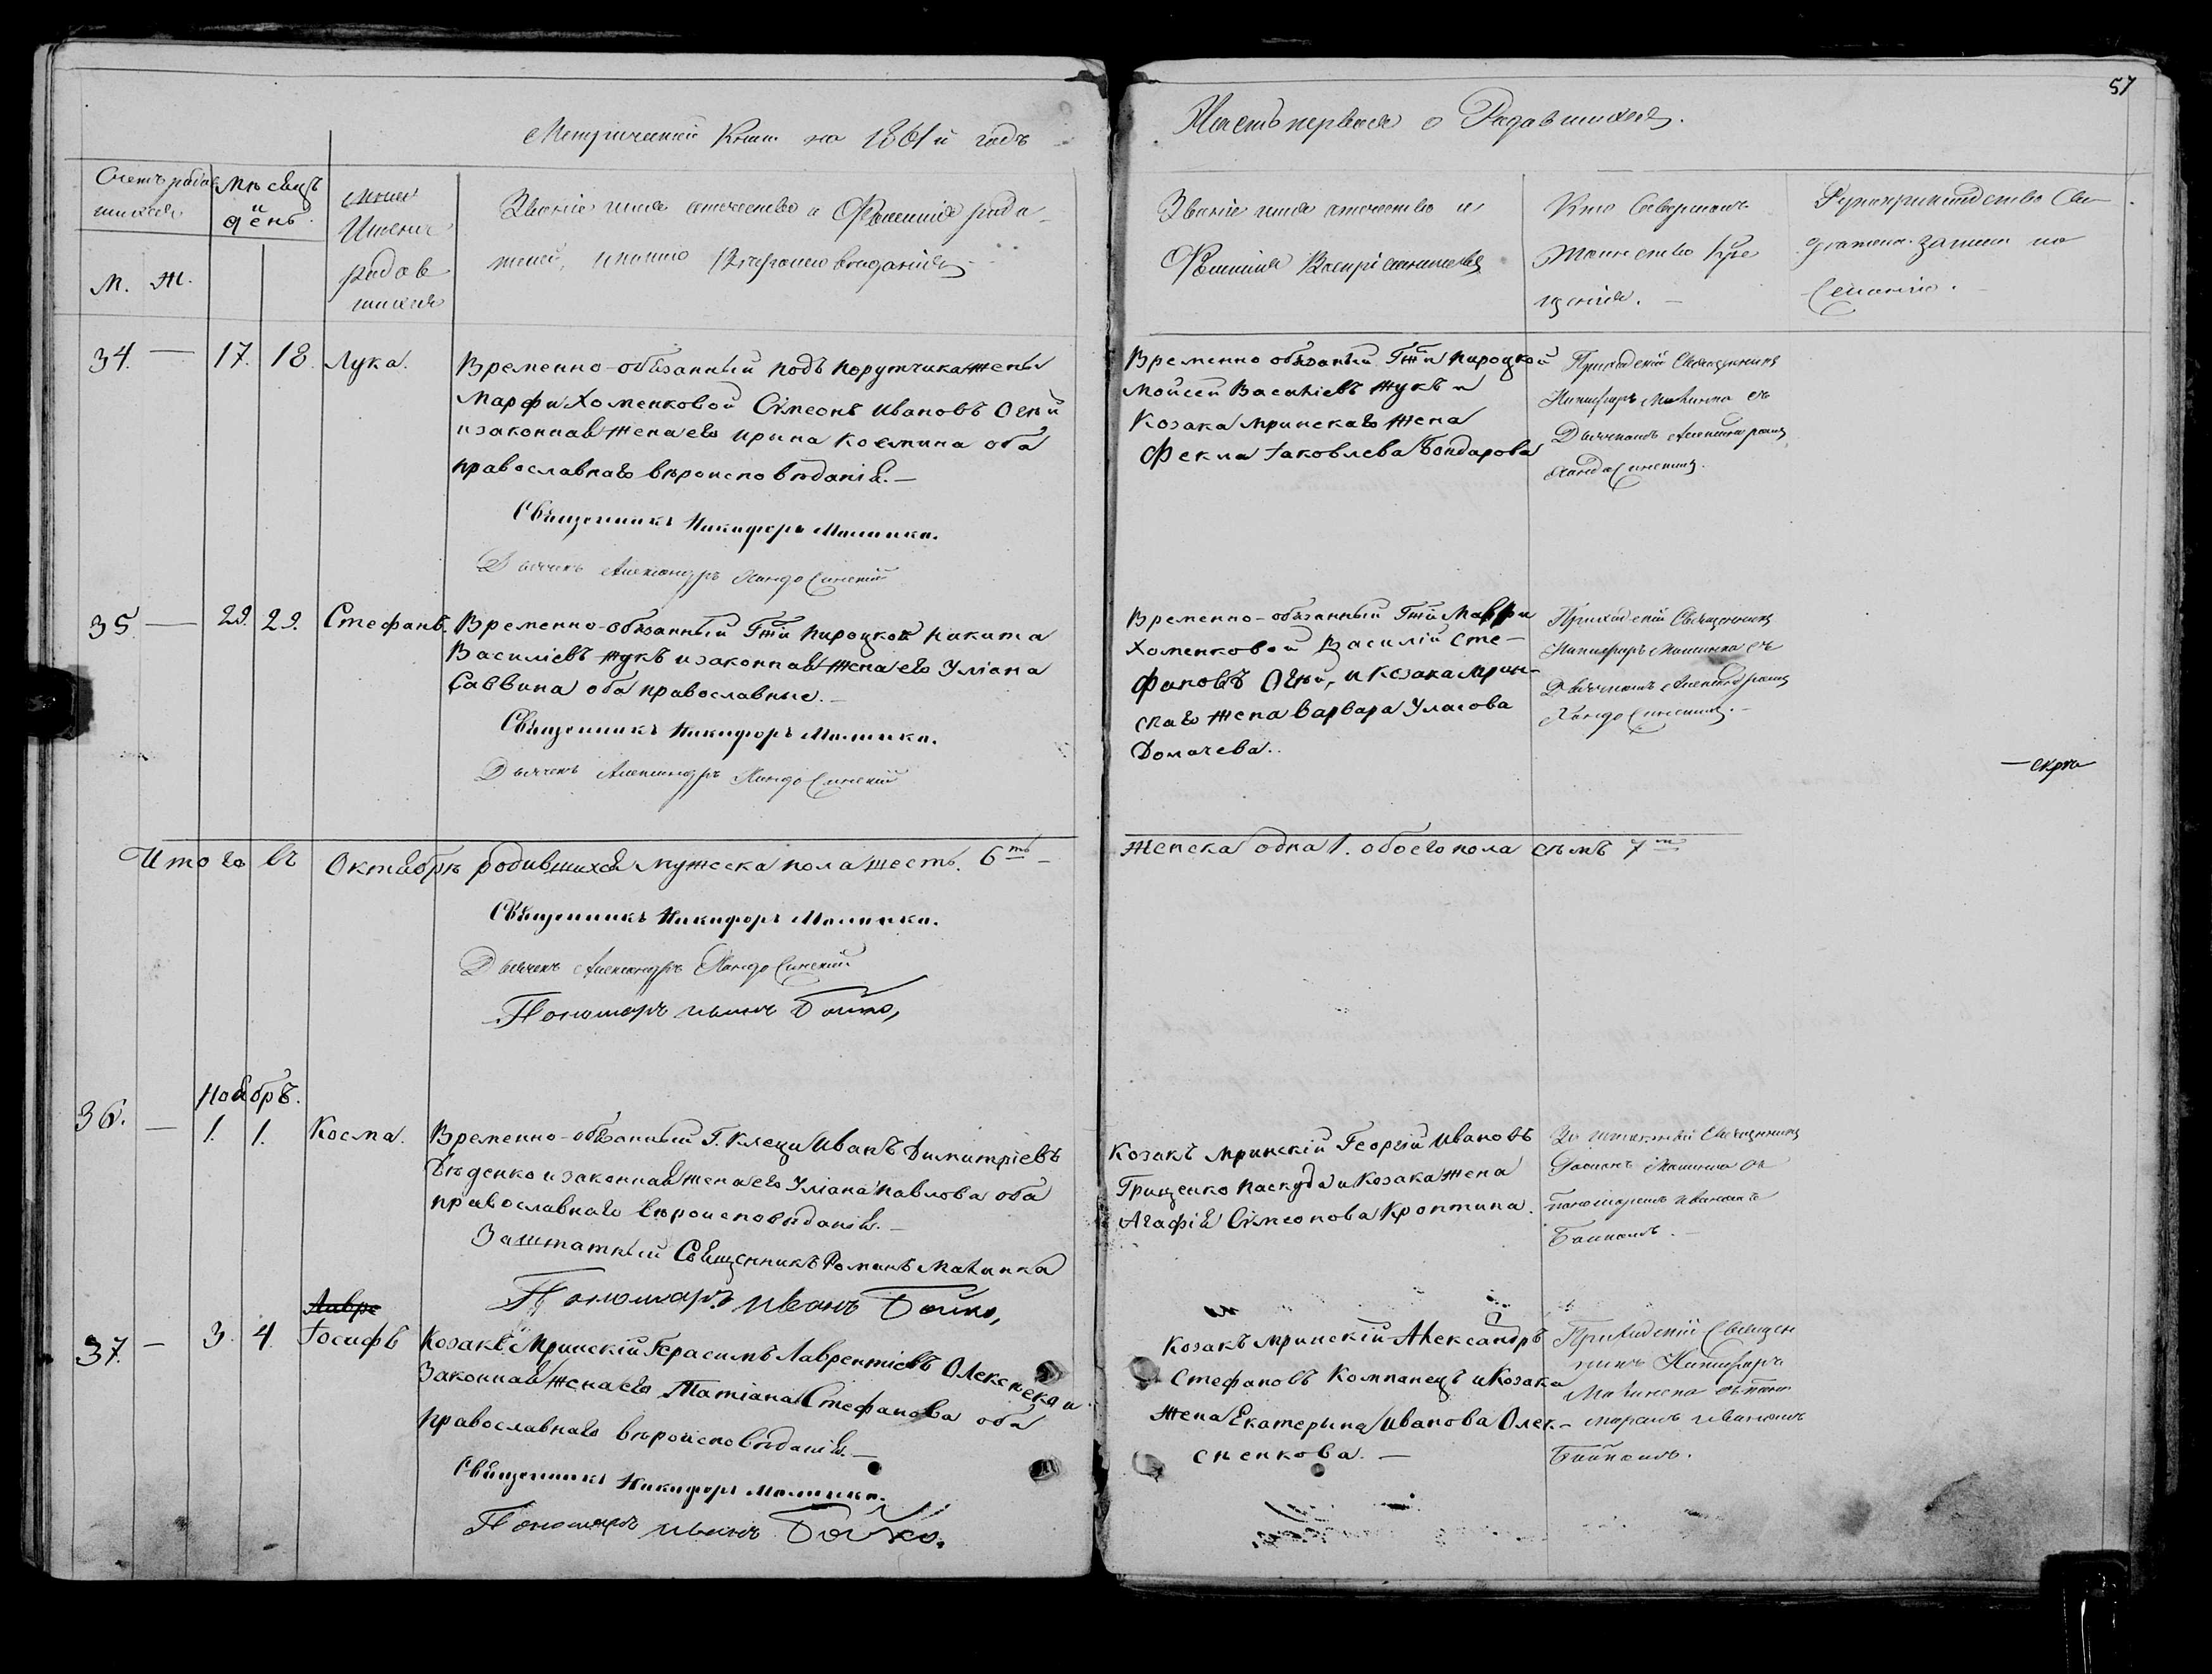 57
Метрической Книги на 1861й годъ
Часть первая о Родившихся.
Счетъ родив
шихся
М. Ж.
Мѣсяцъ
и
день.
Имена
родив
шихся
Званіе имя отчество и Фамилія роди
телей, и какого Вѣроисповѣданія
Званіе имя отчество и
Фамилія Воспріемниковъ
Кто Совершалъ
Таинство Кре
щенія. —
Рукоприкладство Сви
дѣтелей записи по
желанію.
34. — 17. 18. Лука.
Временно-обязанный подъ порутчика жены
Марфи Хоменковой Сѵмеонъ Ивановъ Огій
и законная жена его Ирина Козмина оба
православнаго вѣроисповѣданія. —
Священникъ Никифоръ Малинка.
Дьячекъ Александръ
Временно обязаный Гжи Пироцкой
Мойсей Василіевъ Жукъ и
Козака Мринскаго жена
Фекла Іаковлева Бондарова
Приходскій Священникъ
Никифоръ Малинка съ
Дьячкомъ Александромъ
35. — 29. 29. Стефанъ.
Временно-обязанный Гжи Пироцкой Никита
Василіевъ Жукъ и законная жена его Уліана
Саввина оба православные. —
Священникъ Никифоръ Малинка.
Дьячекъ Александръ
Временно-обязанный Гжи Марфи
Хоменковой Василій Сте-
фановъ Огій, и Козака Мрин-
скаго жена Варвара Уласова
Домачева.
Приходскій Священникъ
Никифоръ Малинка съ
Дьячкомъ Александромъ
— скрѣ
Итого въ Октябрѣ родившихся мужеска пола шесть. 6ть —
женска одна 1. обоего пола семь 7м
Священникъ Никифоръ Малинка.
Дьячекъ Александръ
Пономарь Иванъ Бойко,
Ноябрь.
36. — 1. 1. Косма.
Временно-обязанный Г. Клеци Иванъ Димитріевъ
Дѣденко и законная жена его Уліана Павлова оба
православнаго вѣроисповѣданія. —
Заштатный Священникъ Романъ Малинка
Пономарь Иванъ Бойко,
Козакъ Мринскій Георгій Ивановъ
Грищенко Паскуда и Козака жена
Агафія Сѵмеонова Кроптина.
Заштатный Священникъ
Романъ Малинка съ
Пономаремъ Иваномъ
Бойкомъ. —
Лавре
37. — 3. 4. Іосифъ
Козакъ Мринскій Герасимъ Лаврентіевъ Олексѣенко и
Законная жена его Татіана Стефанова оба
Православнаго вѣроисповѣданія. —
Священникъ Никифоръ Малинка.
Пономарь Иванъ Бойко.
Козакъ Мринскій Александръ
Стефановъ Компанецъ и Козака
жена Екатерина Иванова Олек-
сѣенкова. —
Приходскій Священ
никъ Никифоръ
Малинка съ Поно
маремъ Иваномъ
Бойкомъ.